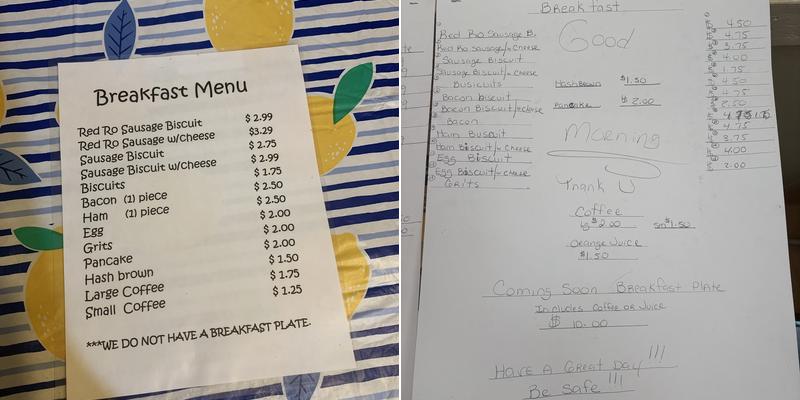 Breakfast Menu
Red Ro Sausage Biscuit $ 2.99
Red Ro Sausage w/cheese $3.29
Sausage Biscuit $ 2.75
Sausage Biscuit w/cheese $ 2.99
Biscuits $ 1.75
Bacon (1) piece $ 2.50
Ham (1) piece $ 2.50
Egg $ 2.00
Grits $ 2.00
Pancake $ 2.00
Hash brown $ 1.50
Large Coffee $ 1.75
Small Coffee $ 1.25
***WE DO NOT HAVE A BREAKFAST PLATE.
Breakfast
Good
Red Ro Sausage B. 4.50
Red Ro Sausage/w cheese 4.75
Sausage Biscuit 3.75
Sausage Biscuit/w cheese 4.00
Busicuits 1.75
Bacon biscuit 4.50
Bacon Biscuit/w cheese 4.75
Bacon 2.50
Ham Buscuit
Ham Biscuit/w cheese 4.75
Egg Biscuit 3.75
Egg Biscuit/w cheese 4.00
Grits 2.00
HashBrown $1.50
Pancake $ 2.00
Morning
Thank U
Coffee
lg $2.00 sm $1.50
Orange Juice
$1.50
Coming Soon Breakfast Plate
Includes Coffee or Juice
$ 10.00
Have A Great Day!!!
Be Safe!!!